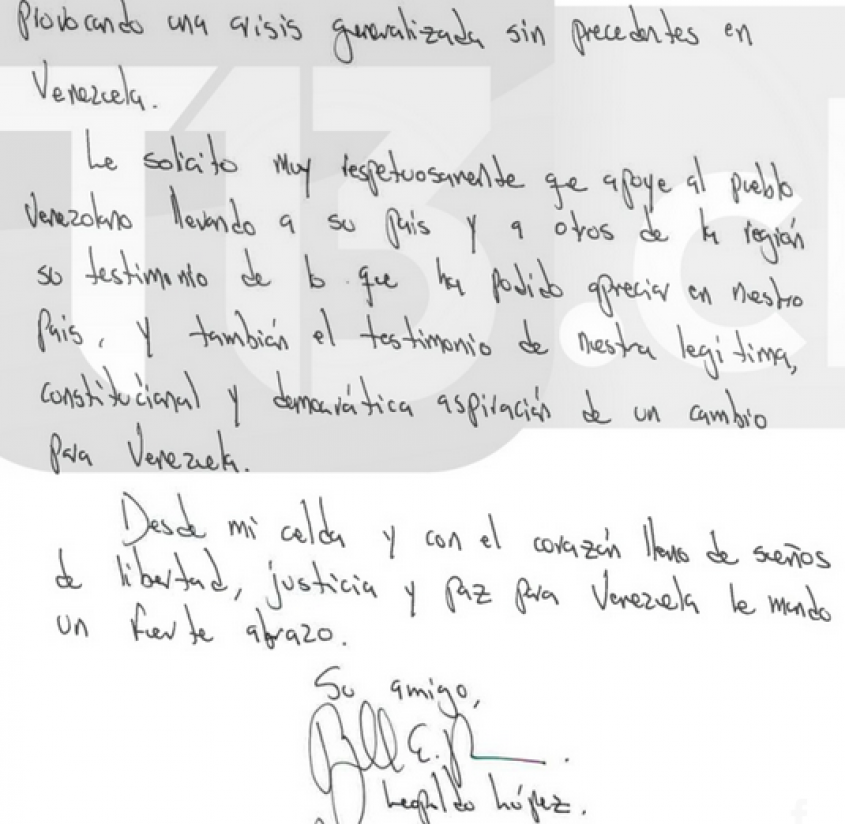 provocando una crisis generalizada sin precedentes en
Venezuela.
Le solicito muy respetuosamente que apoye al pueblo
Venezolano llevando a su país y a otros de la región
su testimonio de lo que ha podido apreciar en nuestro
País, y también el testimonio de nuestra legítima,
constitucional y democrática aspiración de un cambio
para Venezuela.
Desde mi celda y con el corazón lleno de sueños
de libertad, justicia y paz para Venezuela le mando
un fuerte abrazo.
Su amigo,
Leopoldo López.
T13.cl